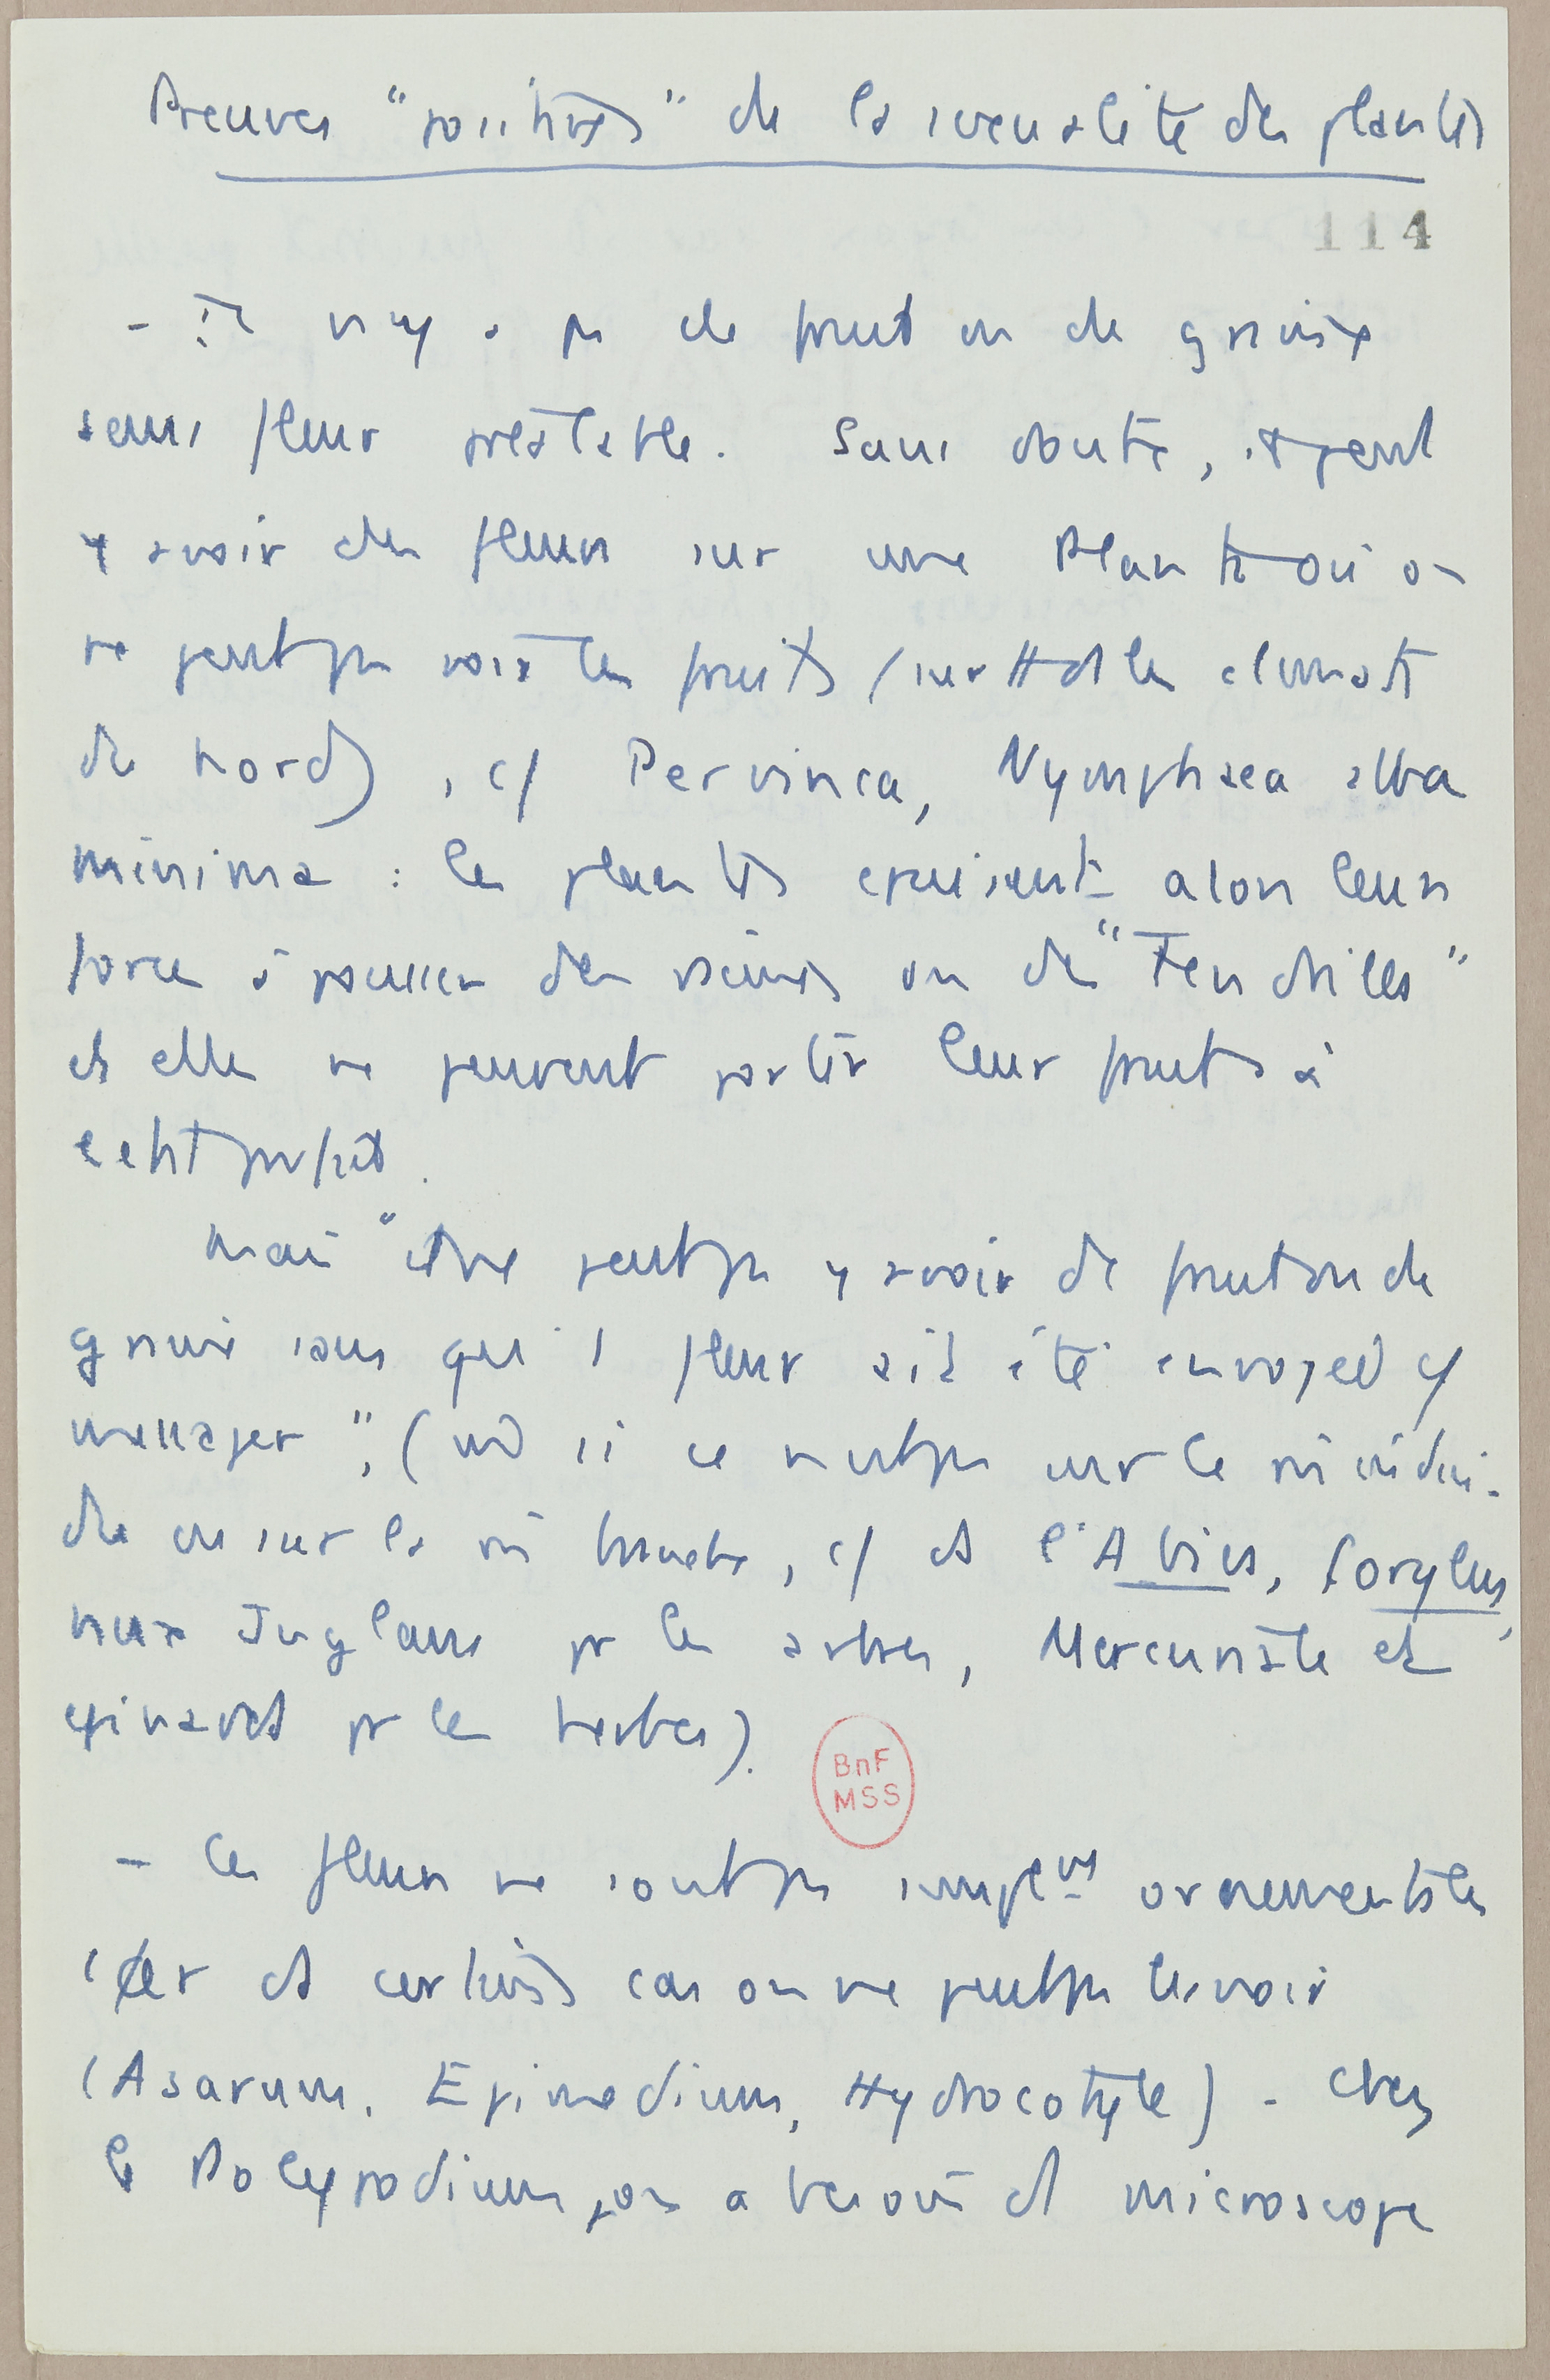 Preuves "positives" de la sexualité des plantes
114
- Il n'y a pas de fruit ou de graine
sans fleur préalable. Sans doute, il peut
y avoir des fleurs sur une Plante où on
ne peut pas voir les fruits (surtt ds les climats
du Nord), cf Pervinca, Nymphaea alba
minima : les plantes épuisent alors leurs
forces à pousser des racines ou des "Tendrilles"
et elles ne peuvent porter leur fruits à
cet
Mais "il ne peut pas y avoir de fruit ou de
graine sans qu' 1 fleur ait été envoyée cf
messager", (md si ce n'est pas sur le mê indivi-
du ou sur la mê branche, cf ds l'Abies, Corylus,
nux Juglans pr les arbres, Mercuriale et
épinards pr les herbes).
BnF
MSS
- Les fleurs ne sont pas simplemt ornementales
car ds certains cas on ne peut pas les voir
(Asarum, Epimedium, Hydrocotyle) - Chez
le Polypodium, on a besoin d' microscope